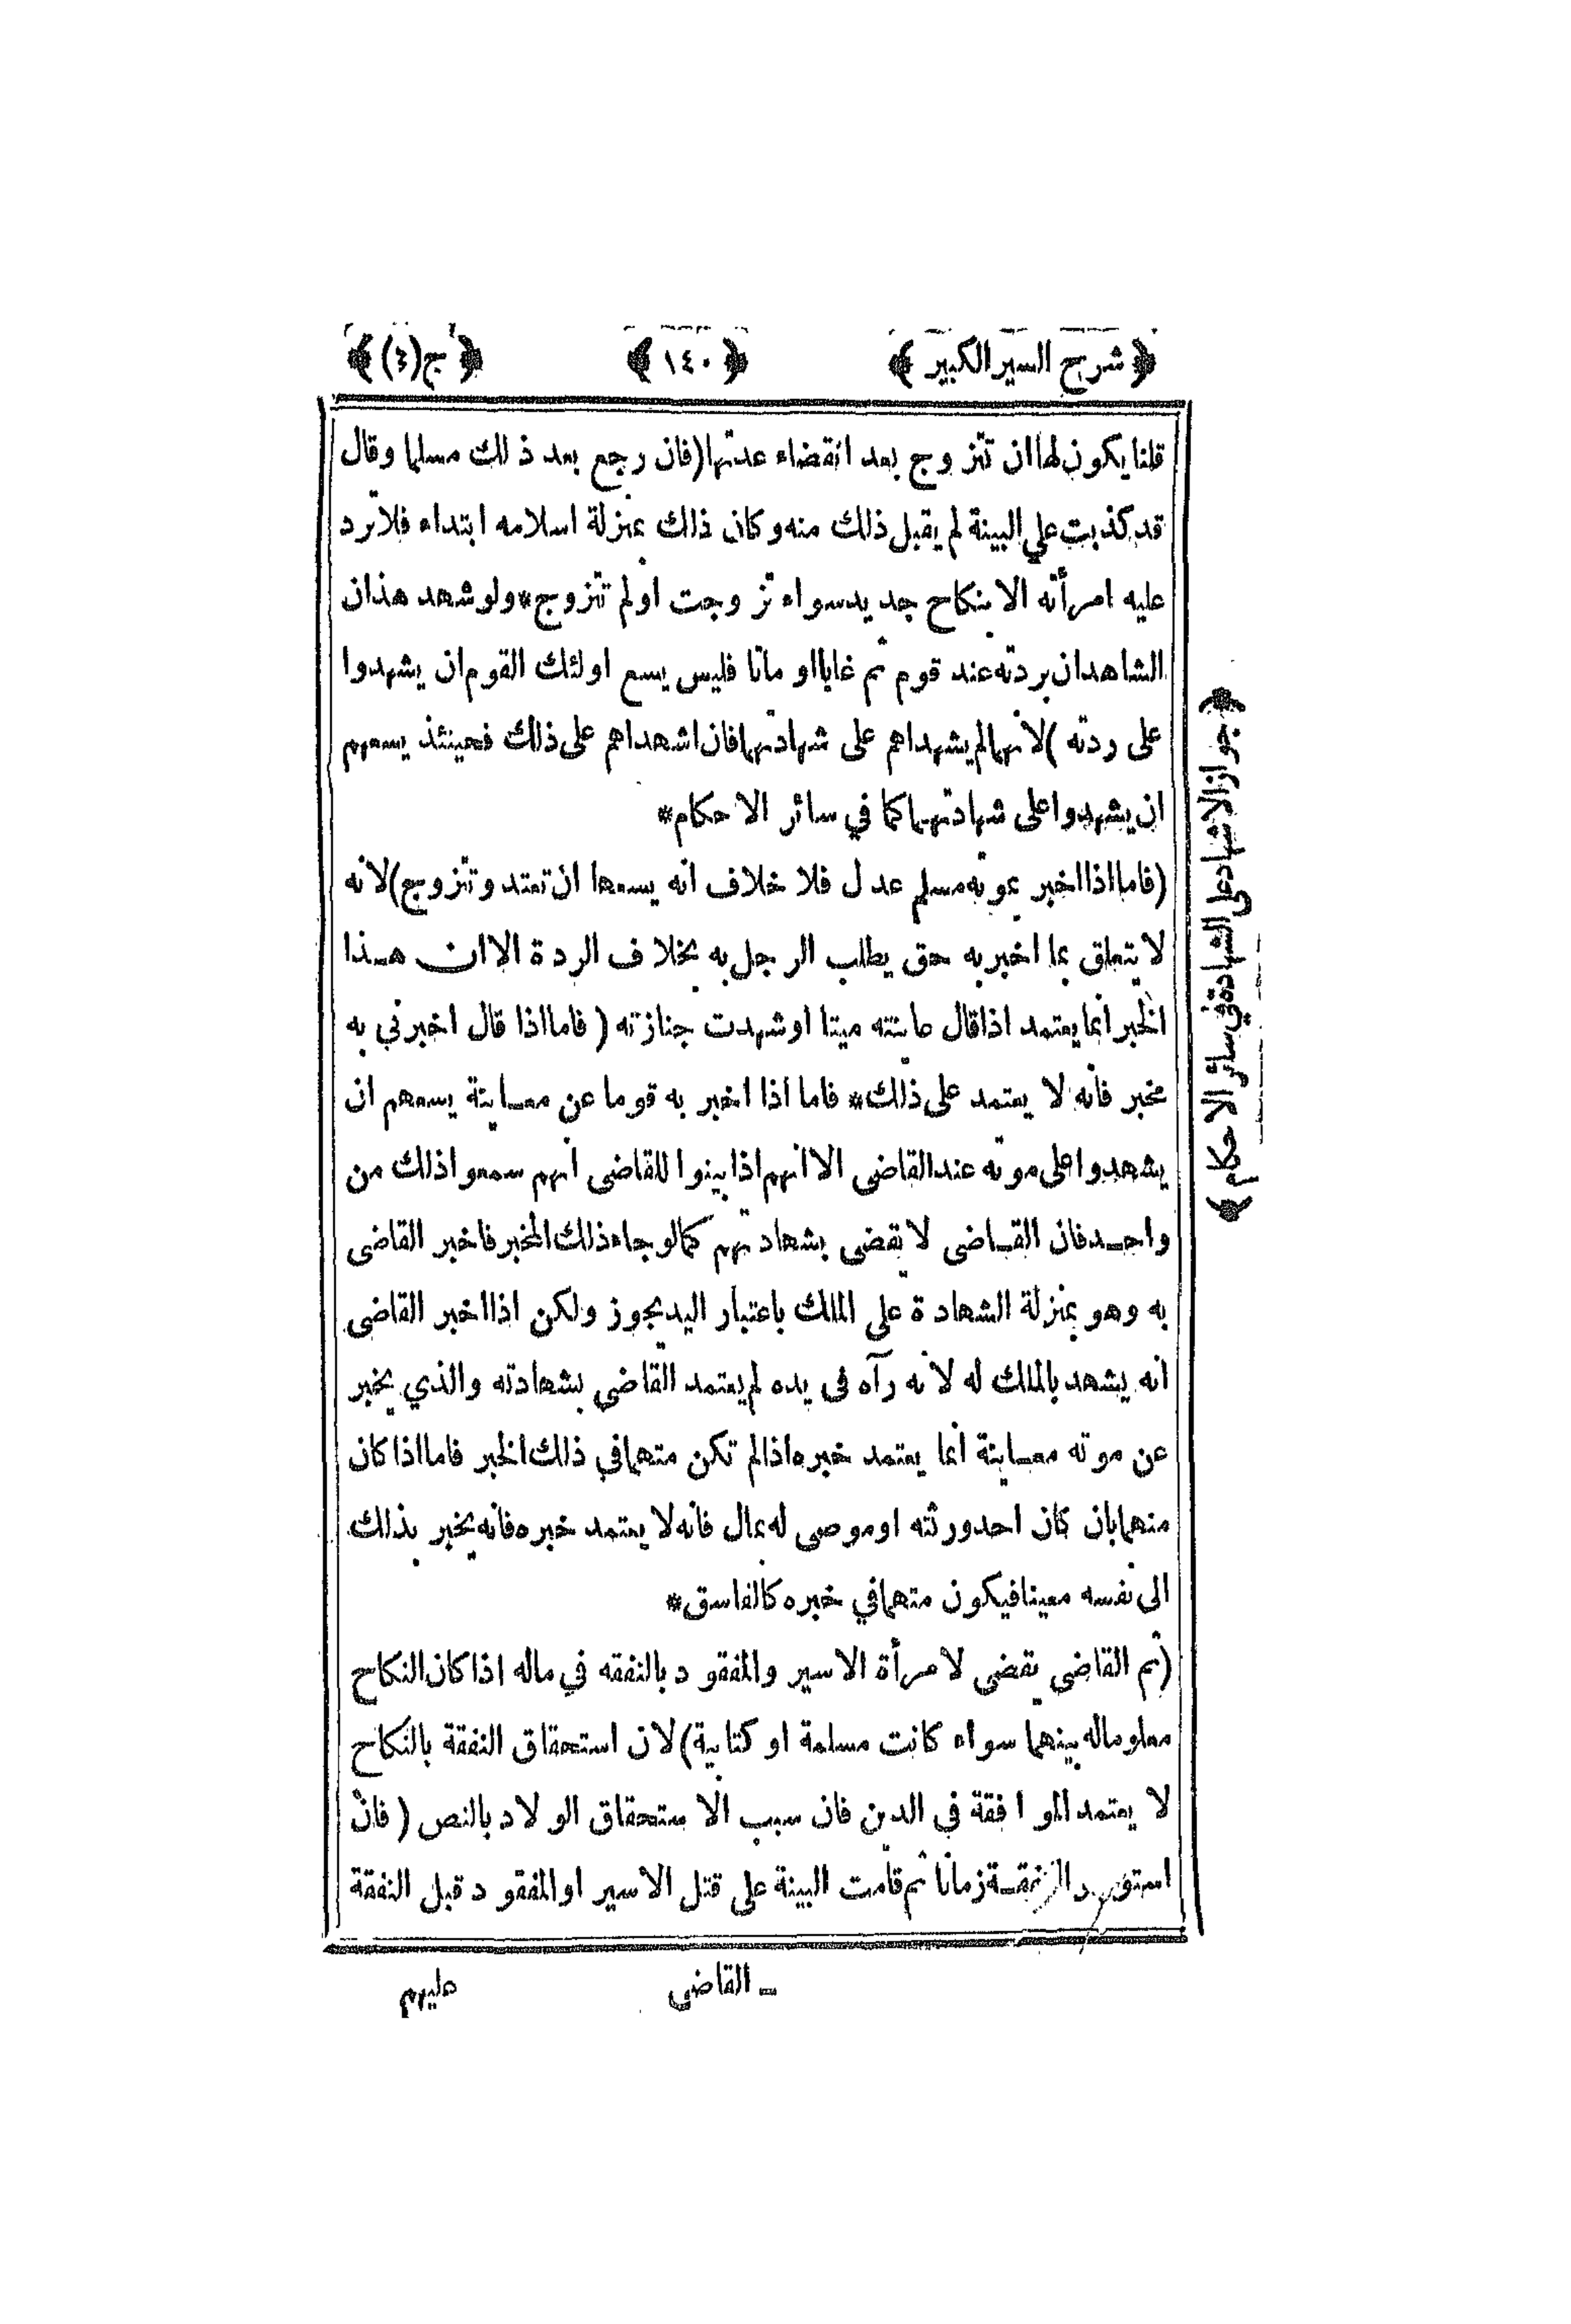 ﴿ شرح السير الكبير ﴾ ﴿ ١٤٠ ﴾ ﴿ ج(٤) ﴾
قلنا يكون لها ان تتزوج بعد انقضاء عدتها (فان رجع بعد ذلك مسلما وقال
قد كذبت علي البينة لم يقبل ذلك منه وكان ذلك بمنزلة اسلامه ابتداء فلا ترد
عليه امرأته الا بنكاح جديد سواء تزوجت او لم تتزوج* ولو شهد هذان
الشاهدان بردته عند قوم ثم غابا او ماتا فليس يسع اولئك القوم ان يشهدوا
على ردته ) لانهما لم يشهداهم على شهادتهما فان اشهداهم على ذلك فحينئذ يسعهم
ان يشهدوا على شهادتهما كما في سائر الاحكام*
(فاما اذا اخبر بموته مسلم عدل فلا خلاف انه يسعها ان تعتد وتتزوج) لانه
لا يتعلق بما اخبر به حق يطلب الرجل به بخلاف الردة الا ان هذا
الخبر انما يعتمد اذا قال عاينته ميتا او شهدت جنازته ( فاما اذا قال اخبرني به
مخبر فانه لا يعتمد على ذلك* فاما اذا اخبر به قوما عن معاينة يسعهم ان
يشهدوا على موته عند القاضى الا انهم اذا بينوا للقاضى انهم سمعوا ذلك من
واحد فان القاضى لا يقضى بشهادتهم كما لو جاء ذلك المخبر فاخبر القاضى
به وهو بمنزلة الشهادة على الملك باعتبار اليد يجوز ولكن اذا اخبر القاضى
انه يشهد بالملك له لانه رآه فى يده لم يعتمد القاضي بشهادته والذي يخبر
عن موته معاينة انما يعتمد خبره اذا لم تكن متهما في ذلك الخبر فاما اذا كان
متهما بان كان احد ورثته او موصى له بمال فانه لا يعتمد خبره فانه يخبر بذلك
الى نفسه معينا فيكون متهما في خبره كالفاسق*
(ثم القاضى يقضى لامرأة الاسير والمفقود بالنفقه في ماله اذا كان النكاح
معلوما له بينهما سواء كانت مسلمة او كتابية) لان استحقاق النفقة بالنكاح
لا يعتمد الموافقة في الدين فان سبب الاستحقاق الولاد بالنص ( فان
النفقة زمانا ثم قامت البينة على قتل الاسير او المفقود قبل النفقة
ـ القاضى عليهم
﴿ جواز الاشهاد على الشهادة في سائر الاحكام ﴾